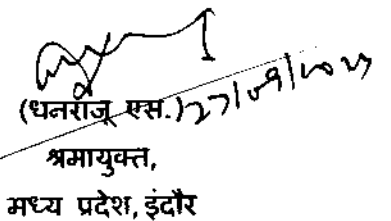 (धनराजू एस.) 27/09/2023
श्रमायुक्त,
मध्य प्रदेश, इंदौर